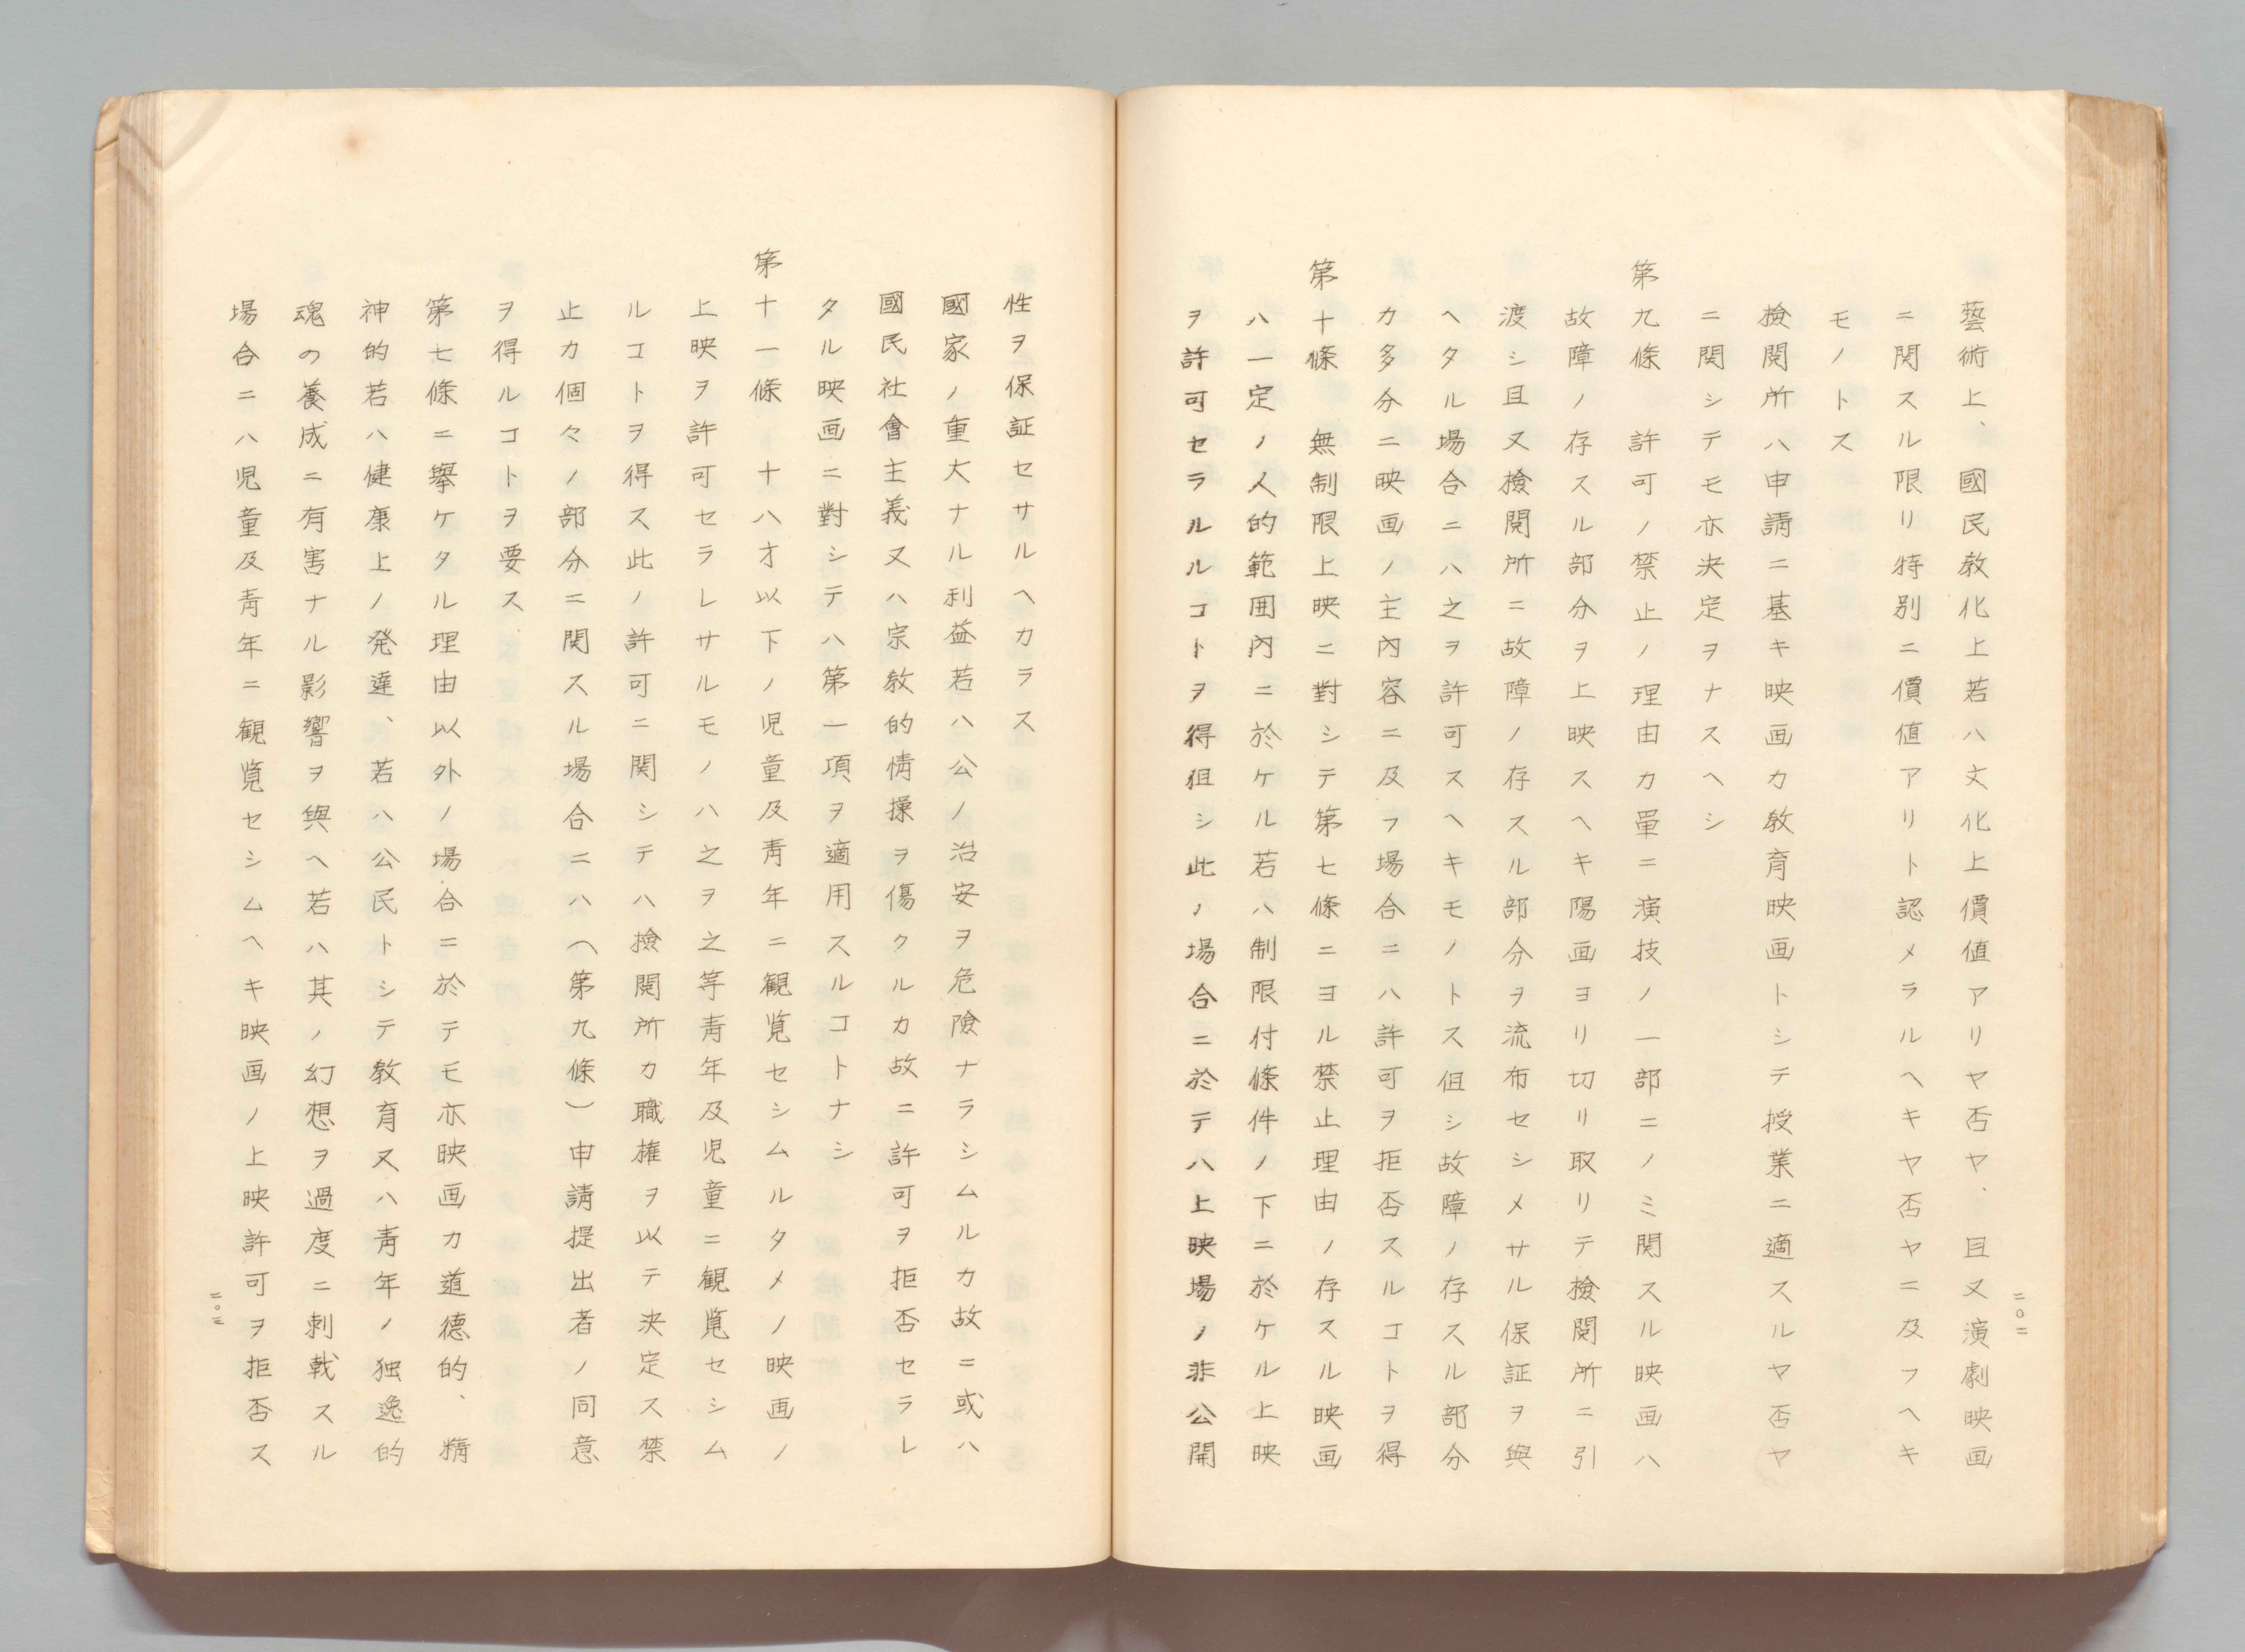 藝術上、國民教化上若ハ文化上價値アリヤ否ヤ、且又演劇映画
ニ関スル限リ特別ニ價値アリト認メラルヘキヤ否ヤニ及フヘキ
モノトス
檢閲所ハ申請ニ基キ映画カ教育映画トシテ授業ニ適スルヤ否ヤ
ニ関シテモ亦决定ヲナスヘシ
第九條　許可ノ禁止ノ理由カ單ニ演技ノ一部ニノミ関スル映画ハ
故障ノ存スル部分ヲ上映スヘキ陽画ヨリ切リ取リテ檢閲所ニ引
渡シ且又檢閲所ニ故障ノ存スル部分ヲ流布セシメサル保証ヲ與
ヘタル場合ニハ之ヲ許可スヘキモノトス伹シ故障ノ存スル部分
カ多分ニ映画ノ主内容ニ及フ場合ニハ許可ヲ拒否スルコトヲ得
第十條　無制限上映ニ對シテ第七條ニヨル禁止理由ノ存スル映画
ハ一定ノ人的範囲内ニ於ケル若ハ制限付條件ノ下ニ於ケル上映
ヲ許可セラルルコトヲ得伹シ此ノ場合ニ於テハ上映場ノ非公開
二〇二
性ヲ保証セサルヘカラス
國家ノ重大ナル利益若ハ公ノ治安ヲ危險ナラシムルカ故ニ或ハ
國民社會主義又ハ宗教的情操ヲ傷クルカ故ニ許可ヲ拒否セラレ
タル映画ニ對シテハ第一項ヲ適用スルコトナシ
第十一條　十八才以下ノ児童及靑年ニ観覧セシムルタメノ映画ノ
上映ヲ許可セラレサルモノハ之ヲ之等靑年及児童ニ観覧セシム
ルコトヲ得ス此ノ許可ニ関シテハ檢閲所カ職権ヲ以テ决定ス禁
止カ個々ノ部分ニ関スル場合ニハ（第九條）申請提出者ノ同意
ヲ得ルコトヲ要ス
第七條ニ擧ケタル理由以外ノ場合ニ於テモ亦映画カ道德的、精
神的若ハ健康上ノ発達、若ハ公民トシテ教育又ハ靑年ノ独逸的
魂の養成ニ有害ナル影響ヲ與ヘ若ハ其ノ幻想ヲ過度ニ刺戟スル
場合ニハ児童及靑年ニ観覧セシムヘキ映画ノ上映許可ヲ拒否ス
二〇三